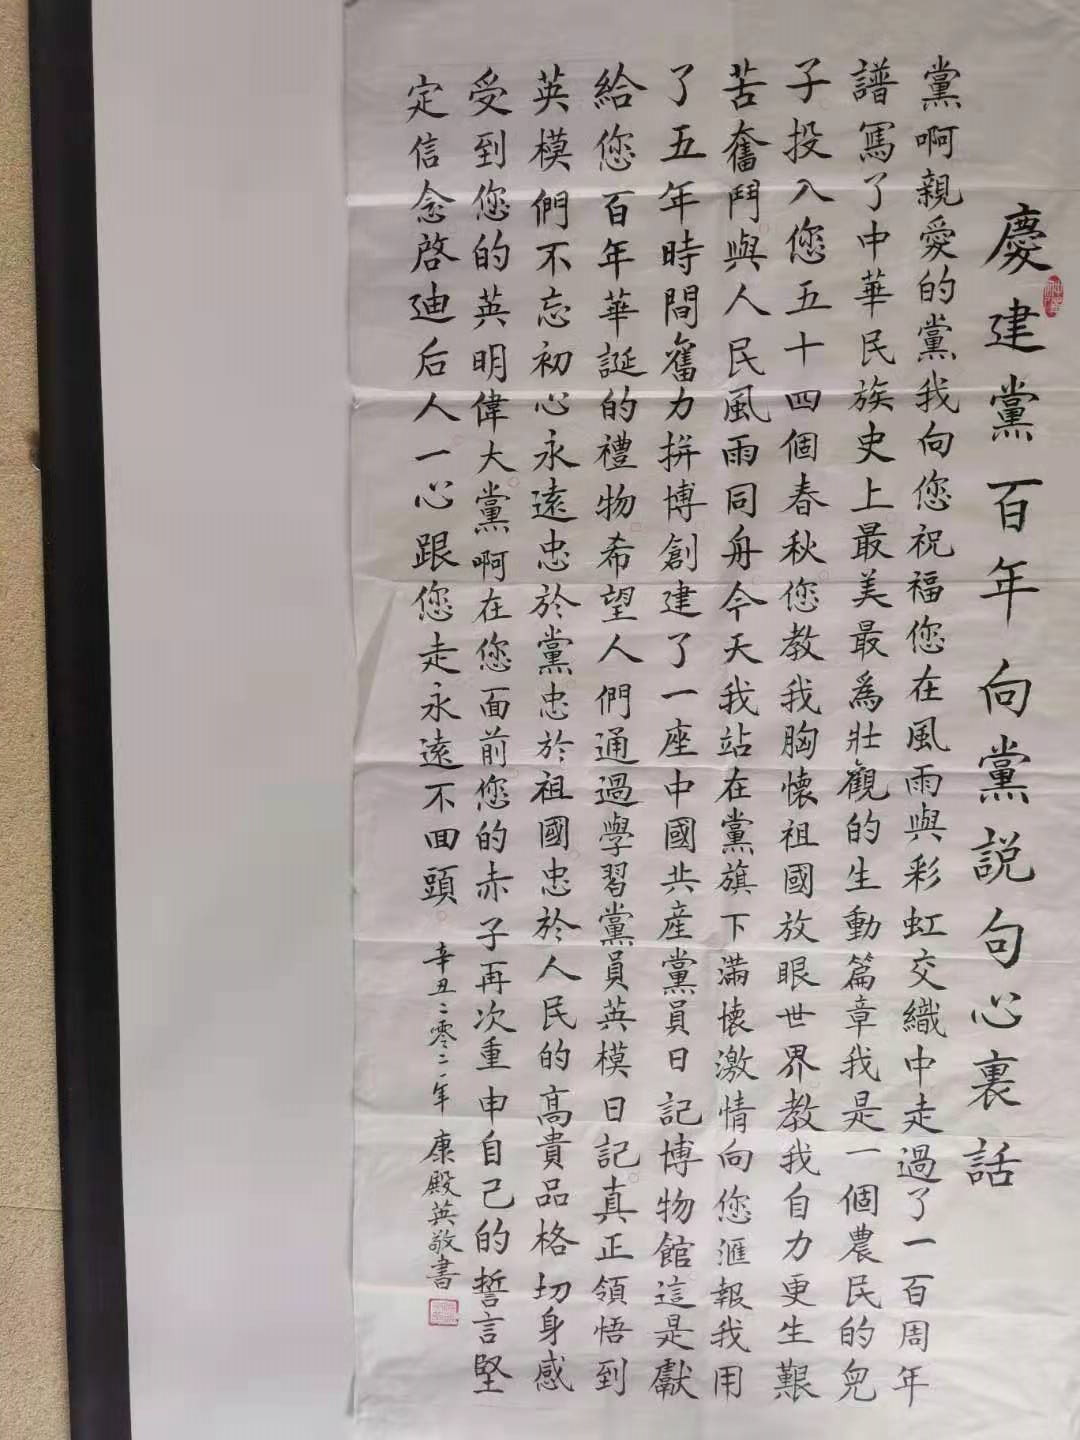 慶建黨百年向黨説句心裏話
黨啊親愛的黨我向您祝福您在風雨與彩虹交織中走過了一百周年
譜寫了中華民族史上最美最為壯觀的生動篇章我是一個農民的兒
子投入您五十四個春秋您教我胸懷祖國放眼世界教我自力更生艱
苦奮鬥與人民風雨同舟今天我站在黨旗下滿懷激情向您滙報我用
了五年時間奮力拼博創建了一座中國共産黨員日記博物館這是獻
給您百年華誕的禮物希望人們通過學習黨員英模日記真正領悟到
英模們不忘初心永遠忠於黨忠於祖國忠於人民的高貴品格切身感
受到您的英明偉大黨啊在您面前您的赤子再次重申自己的誓言堅
定信念啓迪后人一心跟您走永遠不回頭
辛丑二零二一年 康殿英敬書